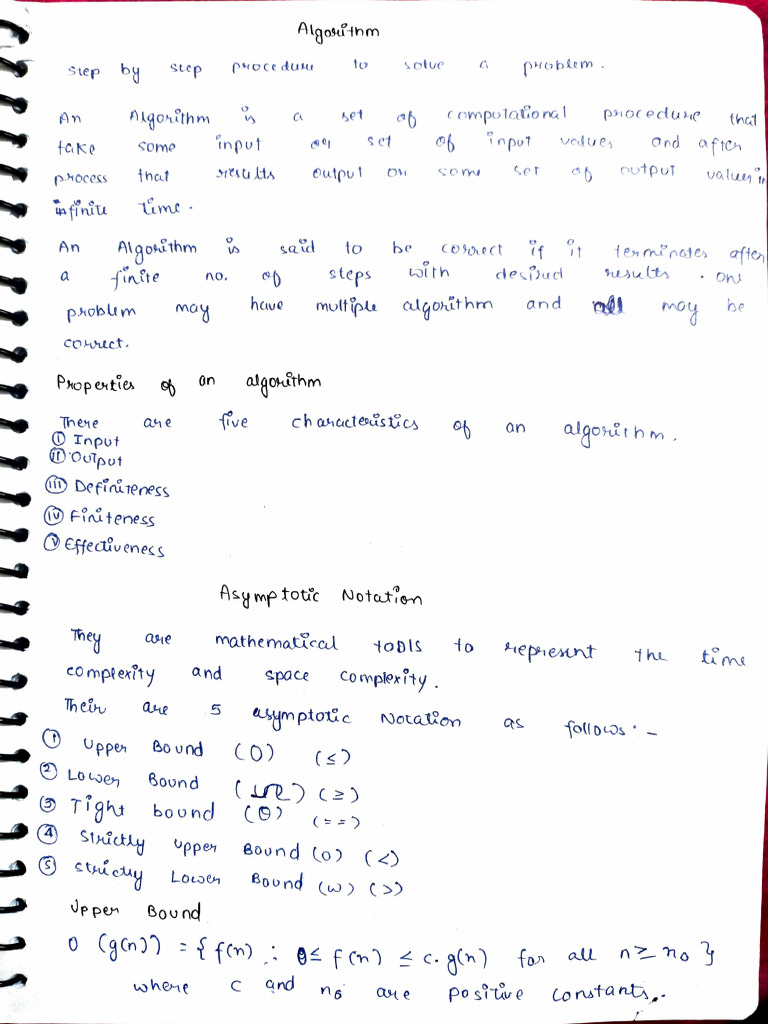 Algorithm
step by step procedure to solve a problem.
An Algorithm is a set of computational procedure that
take some input or set of input values and after
process that results output or some set of output values in
infinite time.
An Algorithm is said to be correct if it terminates after
a finite no. of steps with desired results. one
problem may have multiple algorithm and all may be
correct.
Properties of an algorithm
There are five characteristics of an algorithm.
(i) Input
(ii) Output
(iii) Definiteness
(iv) Finiteness
(v) Effectiveness
Asymptotic Notation
They are mathematical tools to represent the time
complexity and space complexity.
Their are 5 asymptotic Notation as follows:-
① Upper Bound (O) (≤)
② Lower Bound (Ω) (≥)
③ Tight bound (θ) (==)
④ Strictly Upper Bound (o) (<)
⑤ Strictly Lower Bound (ω) (>)
Upper Bound
O (g(n)) = { f(n) : 0 ≤ f(n) ≤ c. g(n) for all n ≥ n₀ }
where c and n₀ are positive constants.